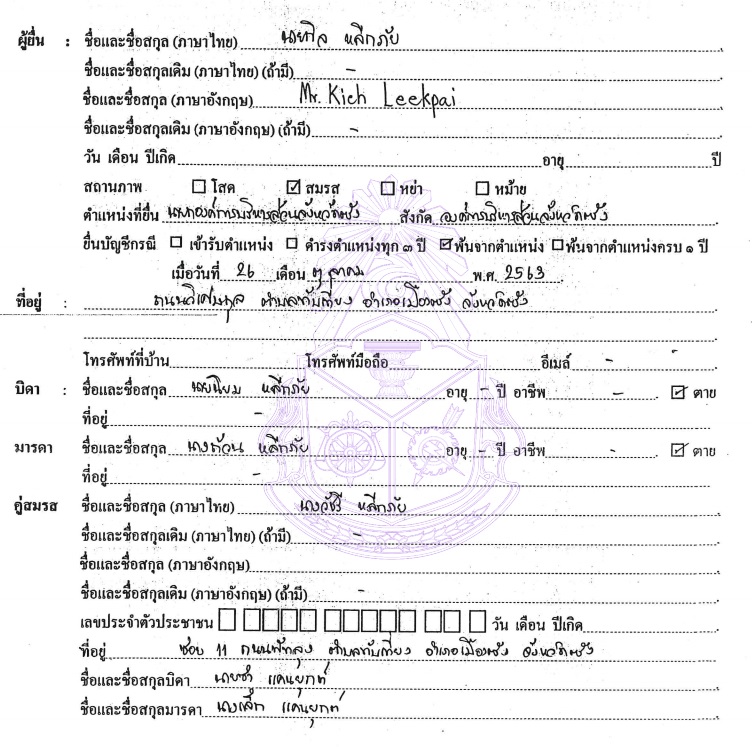 ผู้ยื่น : ชื่อและชื่อสกุล (ภาษาไทย) นายกิจ หลีกภัย
ชื่อและชื่อสกุลเดิม (ภาษาไทย) (ถ้ามี) -
ชื่อและชื่อสกุล (ภาษาอังกฤษ) Mr. Kich Leekpai
ชื่อและชื่อสกุลเดิม (ภาษาอังกฤษ) (ถ้ามี) -
วัน เดือน ปีเกิด อายุ ปี
สถานภาพ ☐ โสด ☑ สมรส ☐ หย่า ☐ หม้าย
ตำแหน่งที่ยื่น นายกองค์การบริหารส่วนจังหวัดตรัง สังกัด องค์การบริหารส่วนจังหวัดตรัง
ยื่นบัญชีกรณี ☐ เข้ารับตำแหน่ง ☐ ดำรงตำแหน่งทุก ๓ ปี ☑ พ้นจากตำแหน่ง ☐ พ้นจากตำแหน่งครบ ๑ ปี
เมื่อวันที่ 26 เดือน ตุลาคม พ.ศ. 2563
ที่อยู่ : ถนนวิเศษกุล ตำบลทับเที่ยง อำเภอเมืองตรัง จังหวัดตรัง
โทรศัพท์ที่บ้าน โทรศัพท์มือถือ อีเมล์ -
บิดา : ชื่อและชื่อสกุล นายนิยม หลีกภัย อายุ - ปี อาชีพ - ☑ ตาย
ที่อยู่ -
มารดา ชื่อและชื่อสกุล นางถ้วน หลีกภัย อายุ - ปี อาชีพ - ☑ ตาย
ที่อยู่ -
คู่สมรส ชื่อและชื่อสกุล (ภาษาไทย) นางวัชรี หลีกภัย
ชื่อและชื่อสกุลเดิม (ภาษาไทย) (ถ้ามี) -
ชื่อและชื่อสกุล (ภาษาอังกฤษ)
ชื่อและชื่อสกุลเดิม (ภาษาอังกฤษ) (ถ้ามี) -
เลขประจำตัวประชาชน วัน เดือน ปีเกิด
ที่อยู่ ซอย 11 ถนนพัทลุง ตำบลทับเที่ยง อำเภอเมืองตรัง จังหวัดตรัง
ชื่อและชื่อสกุลบิดา นายซำ แคนยุกต์
ชื่อและชื่อสกุลมารดา แคนยุกต์